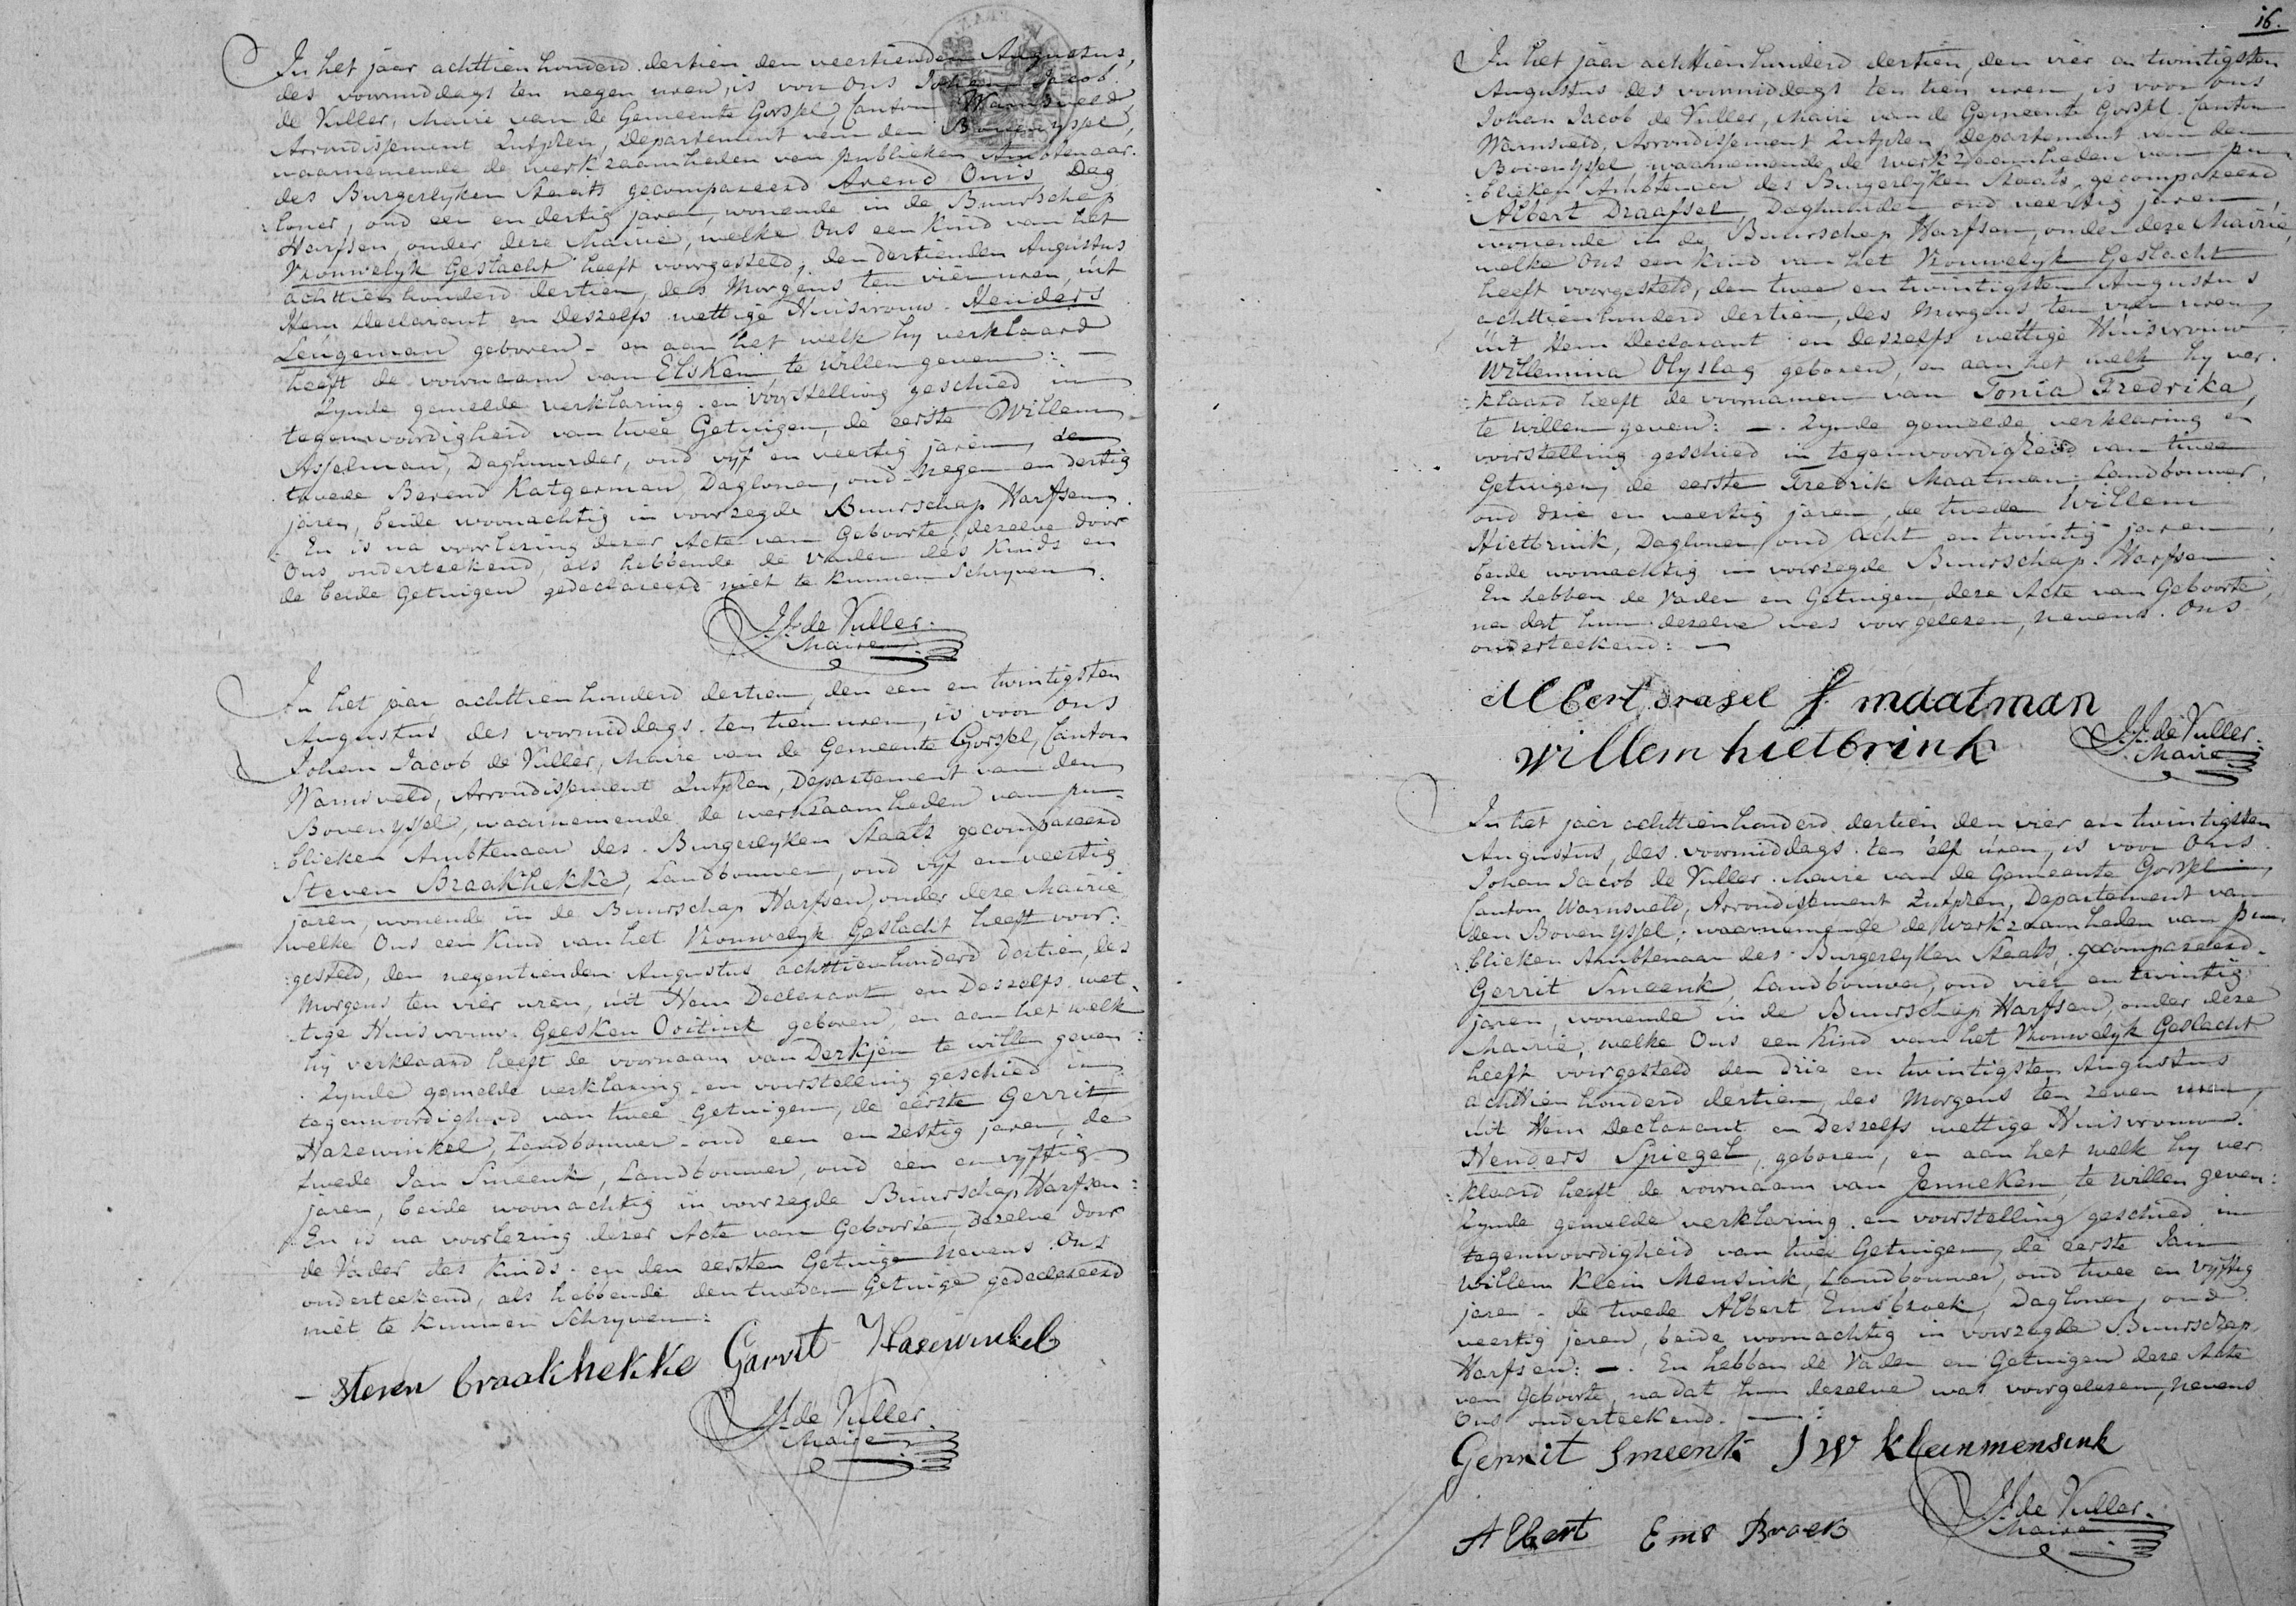 In het jaar achttien honderd dertien den veertienden Augustus,
des voormiddags ten negen uren, is voor ons Johan Jacob
de Vuller, Maire van de Gemeente Gorssel, Canton Warnsveld
Arrondissement Zutphen, Departement van den Bovenyssel,
waarnemende de werkzaamheden van publieken Ambtenaar
des Burgerlyken Staats gecompareerd Arend Onis Dag
:loner, oud een en dertig jaren, wonende in de Buurschap
Harfsen, onder deze Mairie, welke Ons een Kind van het
Vrouwelyk Geslacht heeft voorgesteld, den dertienden Augustus
achttien honderd dertien, des Morgens ten vier uren, uit
Hem Declarant en Deszelfs wettige Huisvrouw Henders
Leugeman geboren - en aan het welk hy verklaard
heeft de voornaam van Elsken te willen geven: -
Zynde gemelde verklaring en voorstelling geschied in
tegenwoordigheid van twee Getuigen, de eerste Willem
Asselman, Daghuurder, oud vyf en veertig jaren, de
tweede Berend Katgerman, Dagloner, oud negen en dertig
jaren, beide woonachtig in voorzegde Buurschap Harfsen.
En is na voorlezing dezer Acte van Geboorte, dezelve door
Ons onderteekend, als hebbende de Vader des Kinds en
de beide Getuigen gedeclareerd niet te kunnen Schryven.
J.J. de Vuller.
Maire
In het jaar achttien honderd dertien, den een en twintigsten
Augustus des voormiddags ten tien uren, is voor ons
Johan Jacob de Vuller, Maire van de Gemeente Gorssel, Canton
Warnsveld, Arrondissement Zutphen, Departement van den
Bovenyssel, waarnemende de werkzaamheden van pu-
:blieken Ambtenaar des Burgerlyken Staats gecompareerd
Steven Braakhekke, Landbouwer, oud vyf en veertig
jaren, wonende in de Buurschap Harfsen, onder deze Mairie
welke Ons een Kind van het Vrouwelyk Geslacht heeft voor:
:gesteld, den negentienden Augustus achttien honderd dertien, des
Morgens ten vier uren, uit Hem Declarant en Deszelfs wet-
:tige Huisvrouw Geesken Ooitink geboren, en aan het welk
hy verklaard heeft de voornaam van Derkjen te willen geven:
Zynde gemelde verklaring en voorstelling geschied in
tegenwoordigheid van twee Getuigen, de eerste Gerrit
Hazewinkel, Landbouwer oud een en zestig jaren, de
twede Jan Smeenk, Landbouwer, oud een en vyftig
jaren, beide woonachtig in voorzegde Buurschap Harfsen:
En is na voorlezing dezer Acte van Geboorte, dezelve door
de Vader des Kinds en den eersten Getuige nevens Ons
onderteekend, als hebbende den tweden Getuige gedeclareerd
niet te kunnen Schryven:
- Steven braakhekke Garrit Hasewinkel
J.J. de Vuller.
Maire
16.
In het jaar achttien honderd dertien, den vier en twintigsten
Augustus des voormiddags ten tien uren, is voor ons
Johan Jacob de Vuller, Maire van de Gemeente Gorssel Canton
Warnsveld, Arrondissement Zutphen Departement van den
Bovenyssel waarnemende de werkzaamheden van pu
:blieken Ambtenaar des Burgerlyken Staats, gecompareerd
Albert Draafsel, Daghuurder oud veertig jaren
wonende in de Buurschap Harfsen, onder deze Mairie
welke Ons een Kind van het Vrouwelyk Geslacht
heeft voorgesteld, den twee en twintigsten Augustus
achttien honderd dertien, des Morgens ten vier uren,
uit Hem Declarant en Deszelfs wettige Huisvrouw
Willemina Olyslag geboren, en aan het welk hy ver
:klaard heeft de voornamen van Tonia Fredrika,
te willen geven: -. Zynde gemelde verklaring en
voorstelling geschied in tegenwoordigheid van twee
Getuigen, de eerste Fredrik Maatman Landbouwer,
oud drie en veertig jaren, de twede Willem
Hietbrink, Dagloner, oud acht en twintig jaren
beide woonachtig in voorzegde Buurschap Harfsen
En hebben de Vader en Getuigen, deze Acte van Geboorte,
na dat hun dezelve was voorgelezen, nevens Ons
onderteekend: -
Albert drasel f. maatman
willem hietbrink
J.J. de Vuller.
Maire
In het jaar achttien honderd dertien den vier en twintigsten
Augustus, des voormiddags ten elf uren, is voor Ons
Johan Jacob de Vuller Maire van de Gemeente Gorssel
Canton Warnsveld, Arrondissement Zutphen, Departement van
den Bovenyssel, waarnemende de werkzaamheden van pu
:blieken Ambtenaar des Burgerlyken Staats, gecompareerd
Gerrit Smeenk, Landbouwer, oud vier en twintig
jaren, wonende in de Buurschap Harfsen, onder deze
Mairie, welke Ons een Kind van het Vrouwelyk Geslacht
heeft voorgesteld den drie en twintigsten Augustus
achttien honderd dertien, des Morgens ten zeven uren,
uit Hem Declarant en Deszelfs wettige Huisvrouw
Henders Spiegel, geboren, en aan het welk hy ver
:klaard heeft de voornaam van Jenneken te willen geven:
Zynde gemelde verklaring en voorstelling geschied in
tegenwoordigheid van twee Getuigen, de eerste Jan
Willem Klein Mensink, Landbouwer, oud twee en vyftig
jaren - de twede Albert Emsbroek, Dagloner, oud
veertig jaren, beide woonachtig in voorzegde Buurschap
Harfsen: -. En hebben de Vader en Getuigen deze Acte
van Geboorte, na dat hun dezelve was voorgelezen, nevens
Ons onderteekend. -:
Gerrit Smeenk J W kleinmensink
Albert Ems Broek
J.J. de Vuller.
Maire